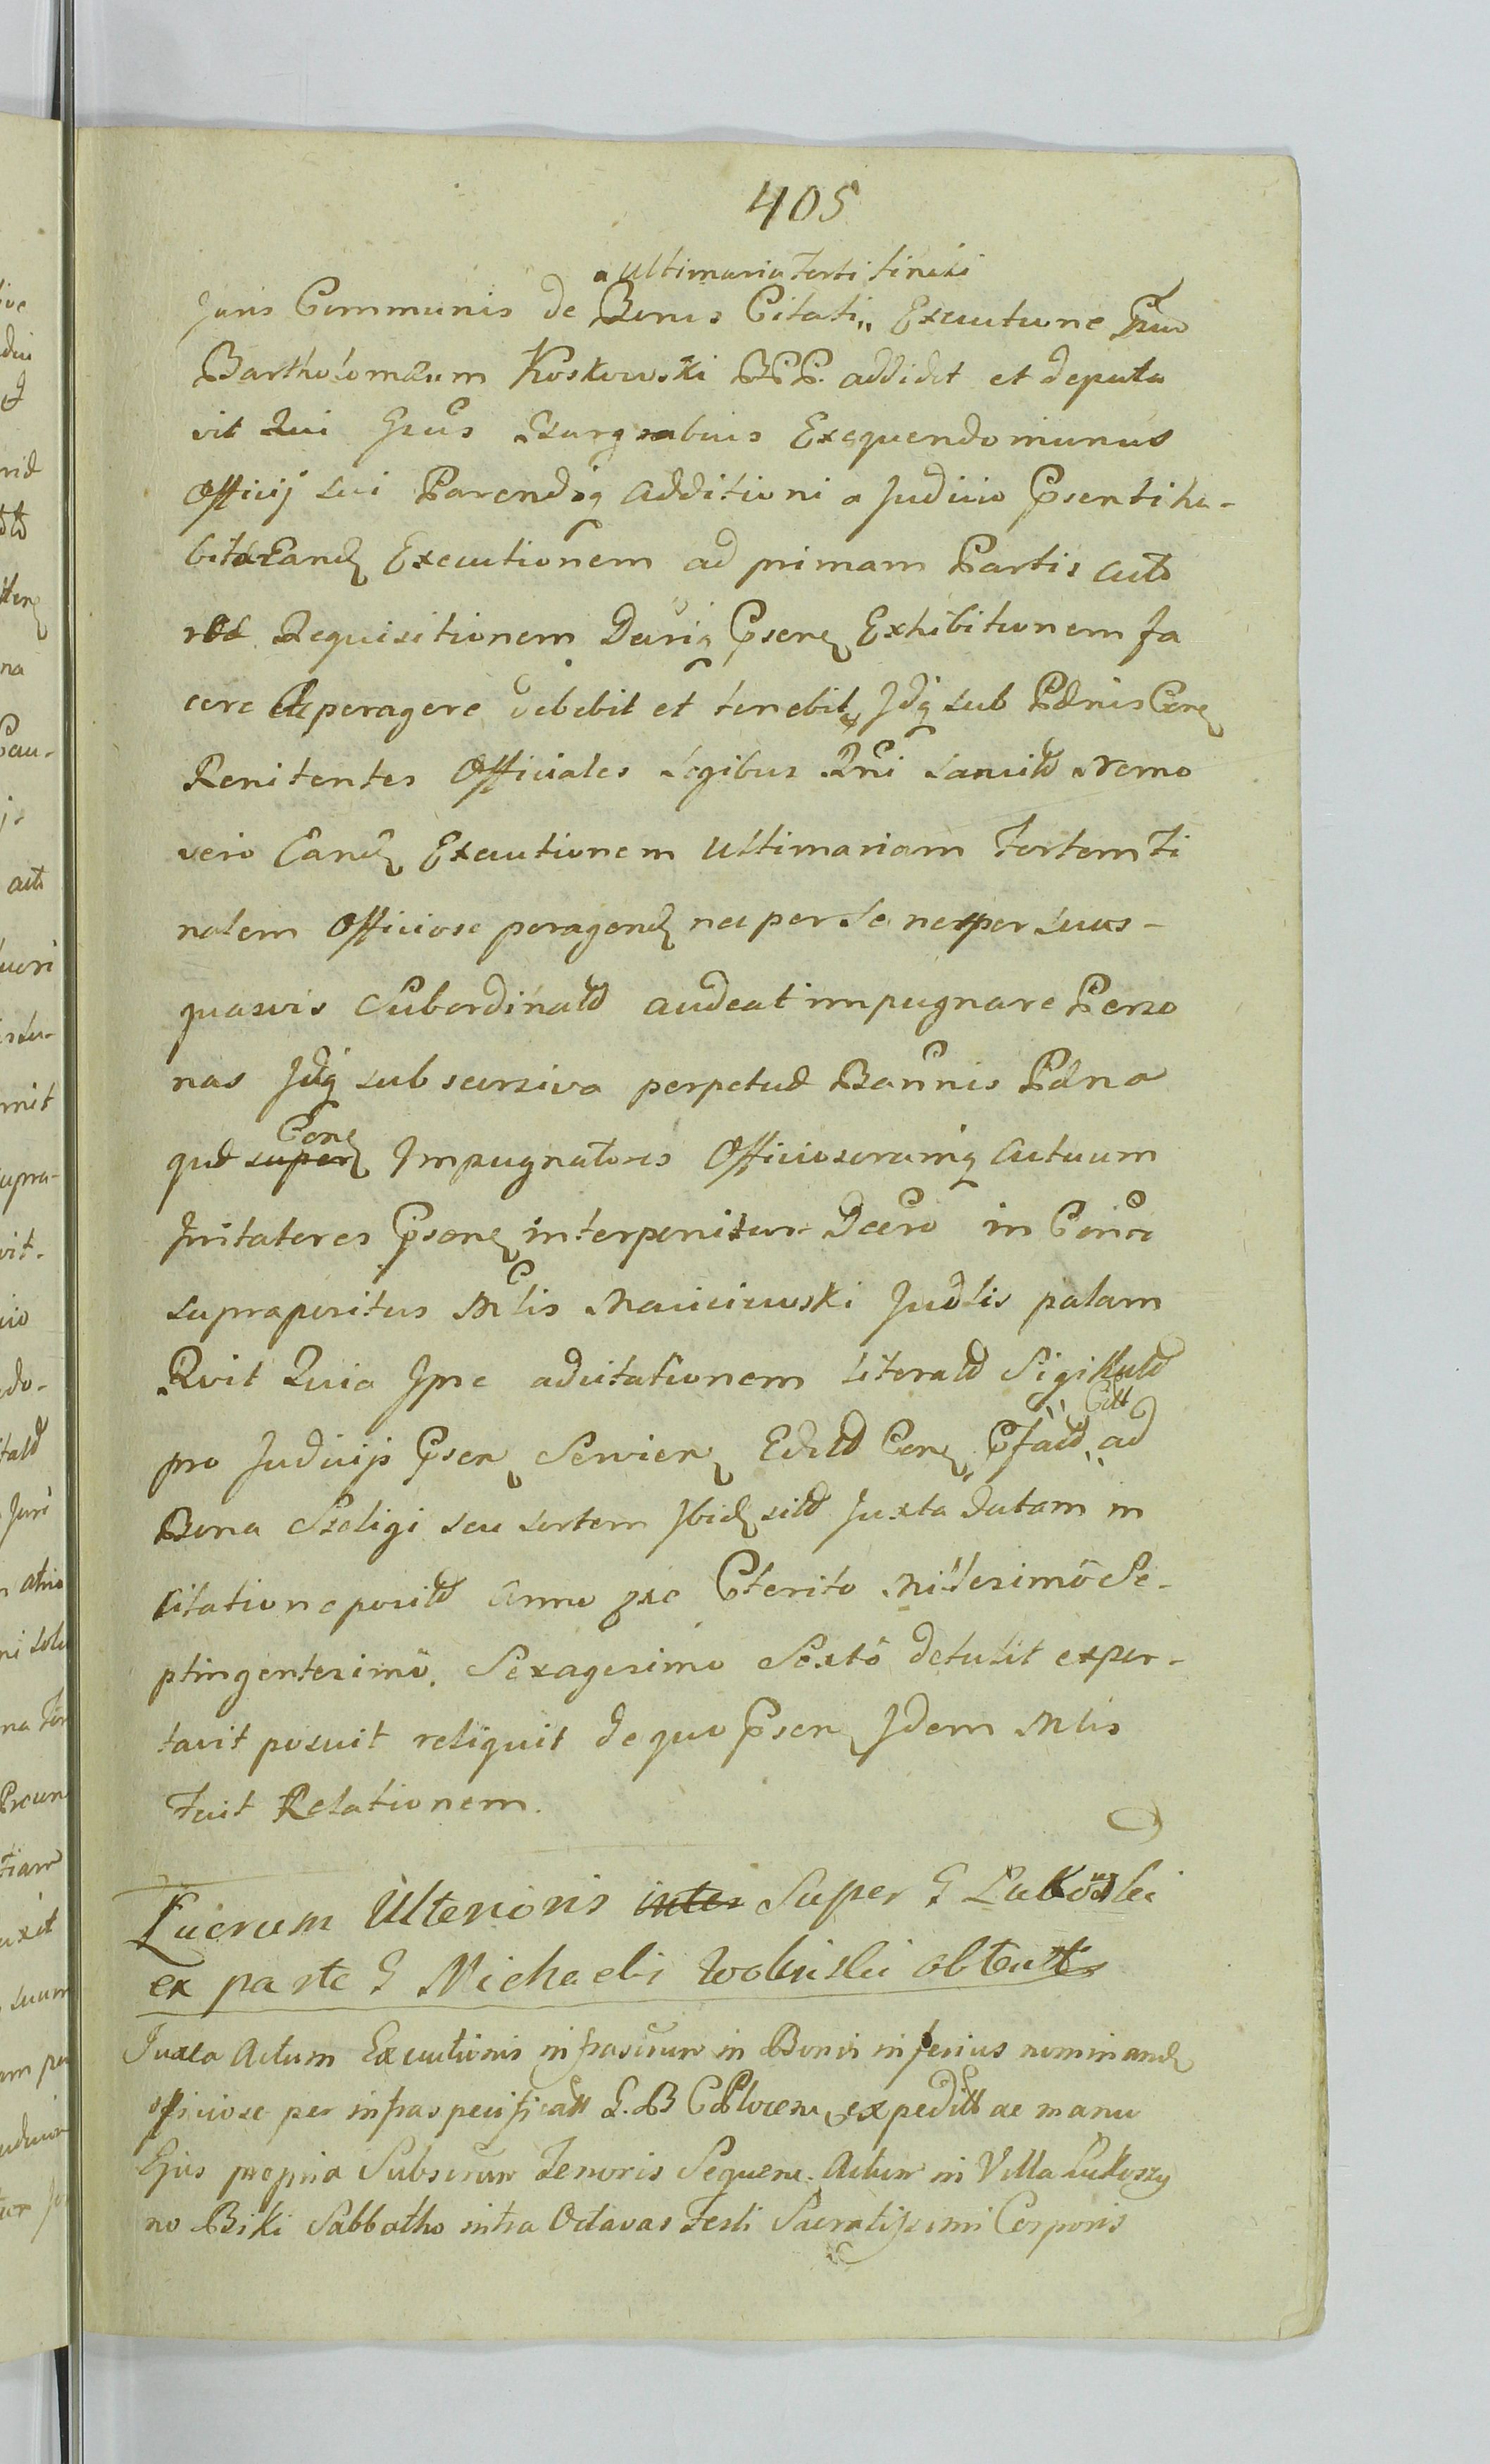 405
a Ultimaria Forti tinali
Juris Communis de Bonis Citati,, Executione Gnn
Bartholomæum Koskowski BPP. addidit et deputa
vit Qui Gnus Burgrabius Exequendo munus
Officij sui Parendoq Additioni a Judicio Psenti ha-
bitæ Eand Executionem ad primam Partis acto
reæ Requisitionem Juriq Psens Exhibitionem fa
cere et peragere debebit et tenebit, Jdq sub Pænis Cone
Renitentes Officiales Legibus Rni Sancitt Nemo
vero Eand Executionem Ultimariam Fortem Ti
nalem Officiose peragend nec per se nec per suas-
quasvis Subordinatt audeat impugnare Perso
nas Jdq sub sursiva perpetuæ Bannis Pæna
quæ super Cone Impugnatores Officiosorumq Actuum
Irritatores Psens interponitur Decro in Conti
supra positus Mlis Maiiciewski Judlis palam
Rvit Quia Ipse ad citationem Literatt Sigillatt
pro Judicijs Psen Servien Editt Con Pfatt,, Citt ad
Bona Szeligi seu sortem Ibid sitt Juxta datam in
Citatione positt Anno pxe Pterito Millesimo Se-
ptingentesimo. Sexagesimo Sexto detulit expor-
tavit posuit reliquit de quo Psen Idem Mlis
Fecit Relationem.
Lucrum Ulterioris inter Super G Lukoski
ex parte G Michaelis Wolinski obtent
Juxta Actum Executionis infrascriem in Bonis inferius nominand
officiose per infraspecificatt G. B C Plocen expeditt ac manu
Ejus propria Subscriem Tenoris Sequen. Actum in Villa Lukoszy
no Biki Sabbatho intra Octavas Festi Sacratissimi Corporis